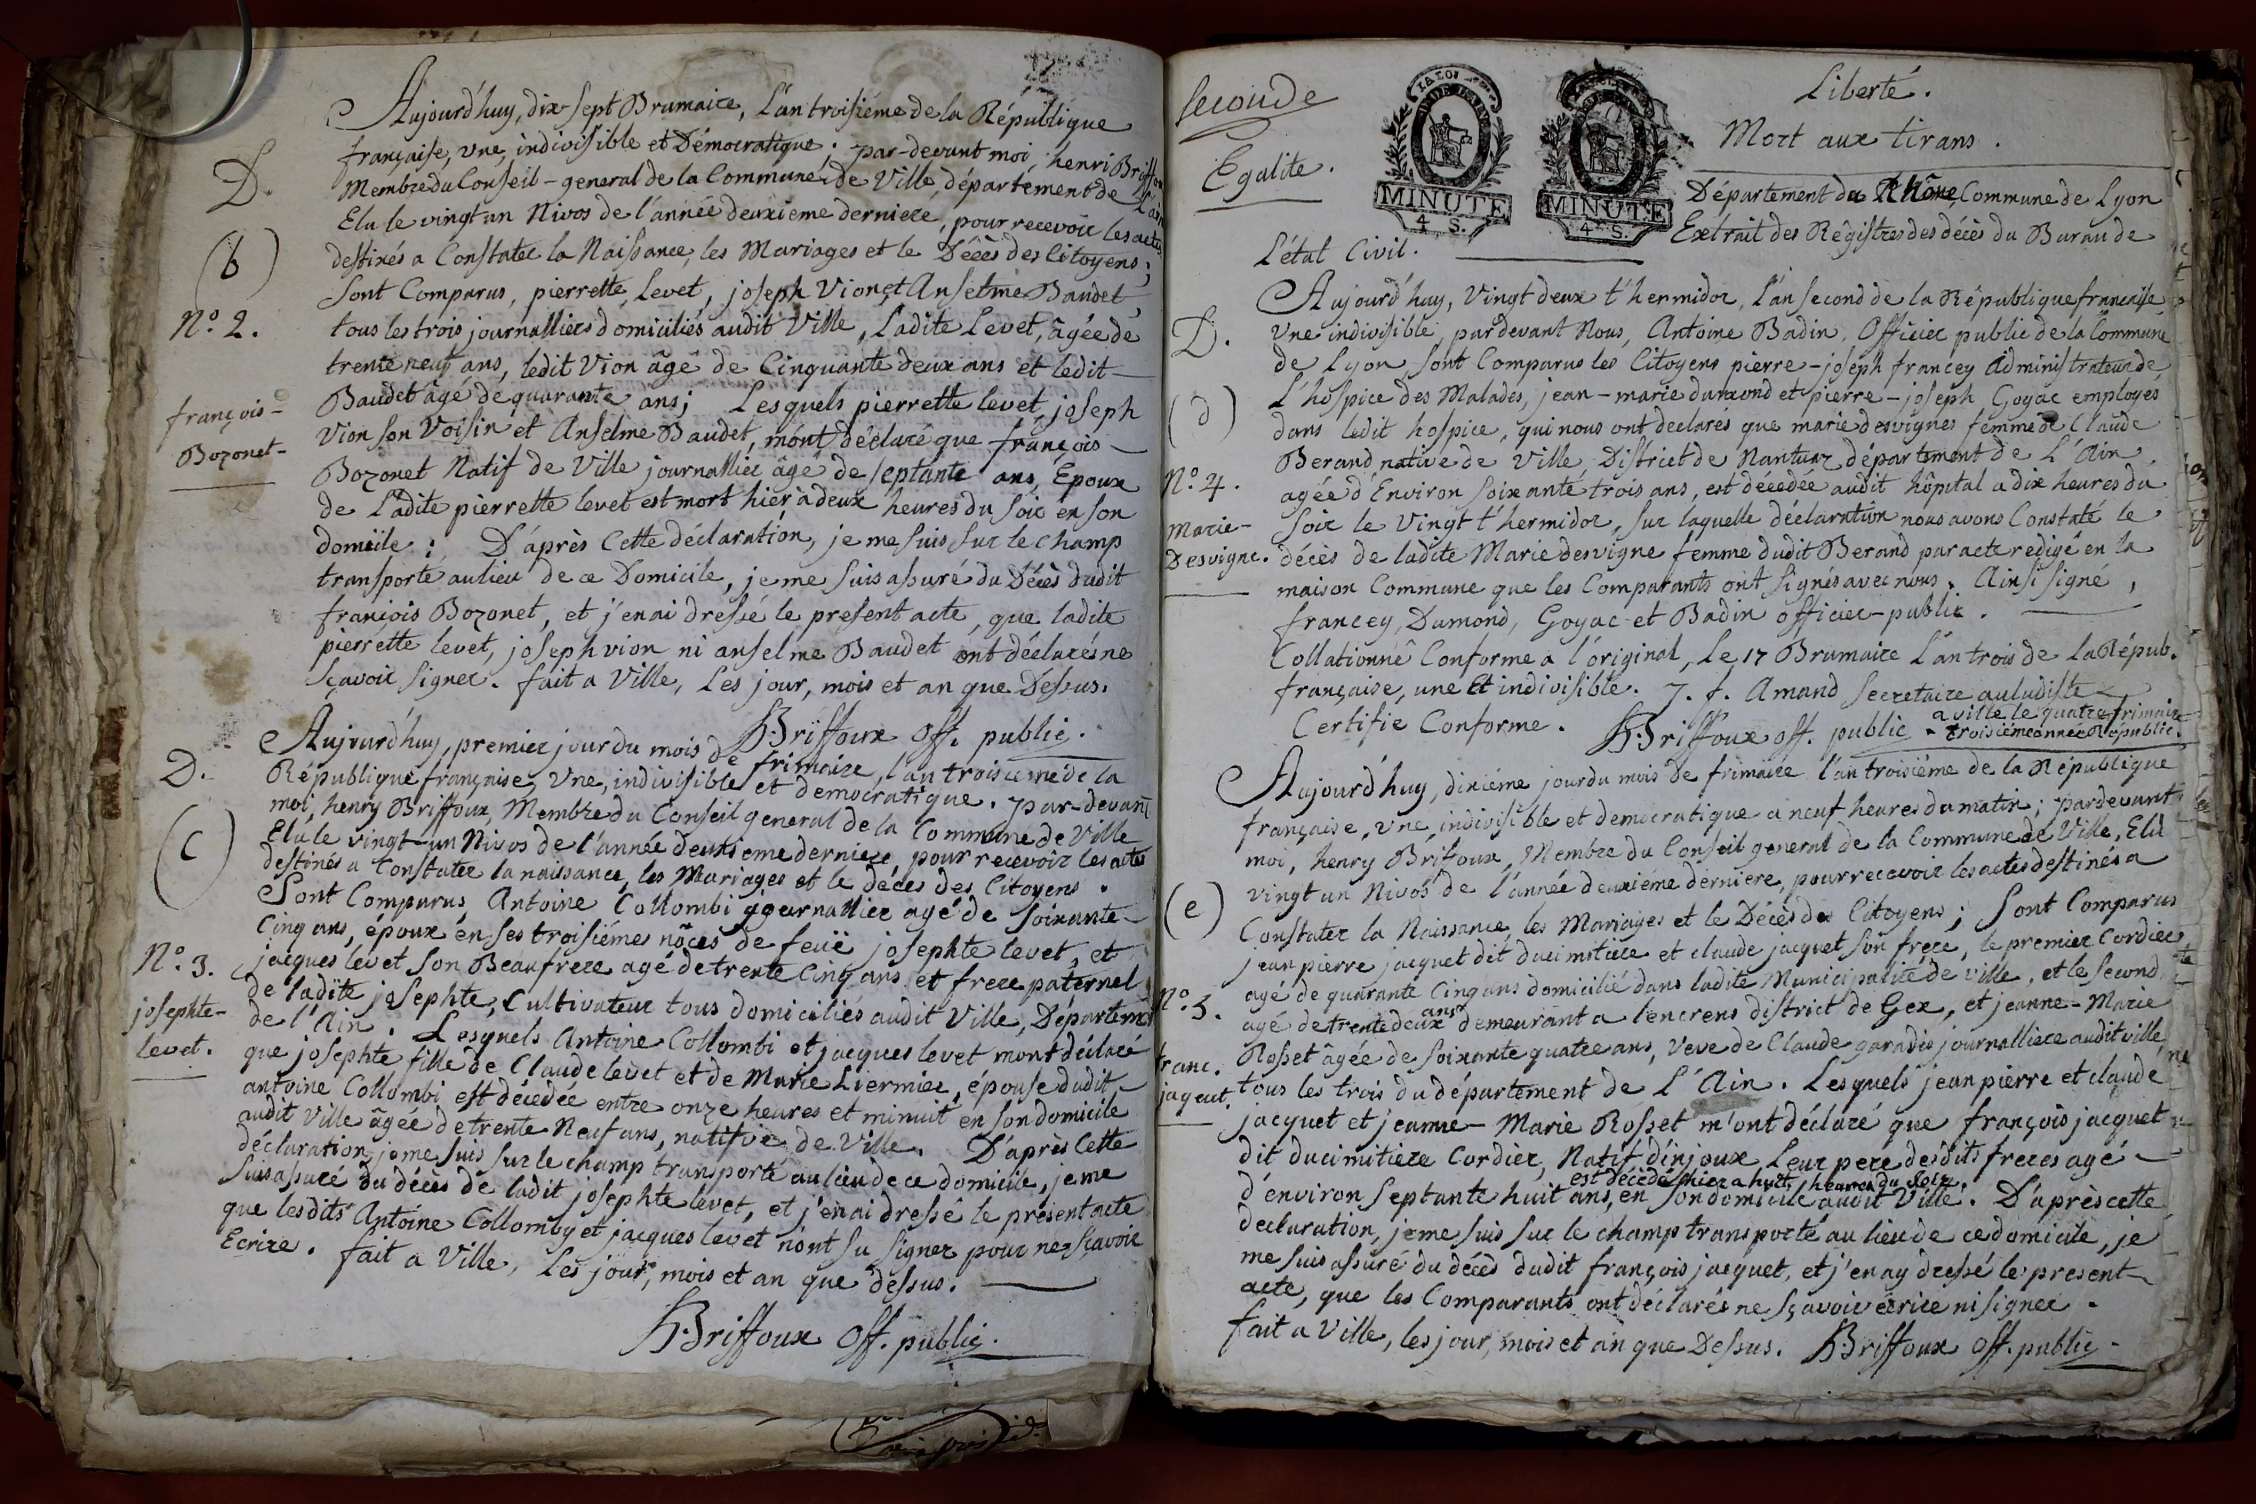 Aujourd'huy, dix-sept Brumaire, L'an troisiéme de la République
française, vne, indivisible et Démocratique; par-devant moi, henri Briffoux
D.
Membre du Conseil-general de la Commune de Ville, département de L'ain
Elu le vingt un Nivos de l'année deuxieme derniere, pour recevoir les actes
(b)
destinés a Constater la Naissance, les Mariages et le Décès des Citoyens;
Sont Comparus, pierrette Levet, joseph Vion et Anselme Baudet,
N.o 2.
tous les trois journalliers domiciliés audit Ville, Ladite Levet, âgée de
trente neuf ans, ledit Vion âgé de Cinquante deux ans et ledit
françois-
Bozonet-
Baudet âgé de quarante ans; Lesquels pierrette levet, joseph
Vion son Voisin et Anselme Baudet, m'ont déclaré que françois
Bozonet Natif de Ville journallier âgé de septante ans, Epoux
de Ladite pierrette levet est mort hier à deux heures du soir en son
domicile; D'après Cette déclaration, je me suis sur le champ
transporté au lieu de ce Domicile, je me suis assuré du Décès dudit
françois Bozonet, et j'en ai dressé le present acte, que ladite
pierrette levet, joseph vion ni anselme Baudet ont déclarés ne
sçavoir signer. fait a Ville, Les jour, mois et an que Dessus.
H. Briffoux off. public.
D.
Aujourd'huy, premier jour du mois de frimaire, l'an troisieme de la
République française, Vne, indivisible et democratique. par-devant
moi, henry Briffoux, Membre du Conseil general de la Commune de Ville
(c)
Elu le vingt-un Nivos de l'année deuxieme derniere, pour recevoir les actes
destinés a Constater la naissance, les Mariages et le décès des Citoyens.
Sont Comparus, Antoine Collombi journallier agé de soixante
Cinq ans, époux en ses troisiémes nôces de feuë josephte levet, et
N.o 3.
jacques levet son Beaufrere agé de trente Cinq ans et frere paternel
josephte-
levet.
de ladite josephte, Cultivateur tous domiciliés audit Ville, Départemt
de l'Ain. Lesquels Antoine Collombi et jacques levet mont déclaré
que josephte fille de Claude levet et de Marie Liermier, épouse dudit
antoine Collombi est décedée entre onze heures et minuit en son domicile
audit Ville âgée de trente Neuf ans, natifve de Ville. D'après Cette
déclaration, je me suis sur le champ transporté au lieu de ce domicile, je me
suis assuré du décès de ladit josephte levet, et j'en ai dressé le présent acte
que lesdits Antoine Collomby et jacques levet n'ont su signer pour ne sçavoir
Ecrire. fait a Ville, Les jour, mois et an que dessus.
H. Briffoux off. public.
seconde
Liberté.
Egalite.
Mort aux tirans.
MINUTE
4 S.
MINUTE
4 S.
Département du Rhône, Commune de Lyon
Extrait des Régistres des décès du Burau de
L'état Civil.
Aujourd'huy, Vingt deux t'hermidor, L'an second de la République francaise
D.
Vne indivisible, pardevant Nous, Antoine Badin, Officier public de la Commune
de Lyon sont Comparus les Citoyens pierre-joseph francey administrateur de
(d)
L'hospice des Malades, jean-marie dumond et pierre-joseph Goyac employés
dans ledit hospice, qui nous ont declarés que marie desvignes femme de Claude
N.o 4.
Berand native de Ville, District de Nantuaz département de L'Ain,
agée d'Environ soixante trois ans, est décedée audit hôpital a dix heures du
marie-
Desvigne.
soir le Vingt t'hermidor, sur laquelle déclaration nous avons Constaté le
décès de ladite Marie desvigne femme dudit Berand par acte redigé en la
maison Commune que les Comparants ont signés avec nous. Ainsi signé,
francey, Dumond, Goyac et Badin officier-public.
Collationné Conforme a l'original, Le 17 Brumaire L'an trois de La Répub.
française, une Et indivisible. J. f. Amand secretaire
Certifie Conforme. H. Briffoux off. public a ville le quatre frimaire
troisiéme année Républic.
Aujourd'huy, dixiéme jour du mois de frimaire l'an troisiéme de la République
française, Vne, indivisible et democratique a neuf heures du matin; pardevant
moi, henry Brifoux, Membre du Conseil general de la Commune de Ville, Elû
vingt un Nivos de l'année deuxiéme derniere, pour recevoir les actes destinés a
(e)
Constater la Naissance, les Mariages et le Décès des Citoyens; Sont Comparus
jean pierre jacquet dit ducimitiere et claude jacquet son frere, le premier Cordier
agé de quarante Cinq ans domicilié dans ladite Municipalité de ville, et le second
N.o 5.
agé de trente deux ans demeurant a lencrens district de Gex, et jeanne-Marie
franc.
jaquet.
Rosset âgée de soixante quatre ans, veve de Claude garadis journalliere audit ville,
tous les trois du département de L'Ain. Lesquels jean pierre et claude
jacquet et jeanne-Marie Rosset m'ont déclaré que françois jacquet
dit ducimitiere Cordier, Natif d'injoux Leur pere desdits freres agé
est décédé hier a huit heures du soir
d'environ septante huit ans, en son domicile audit Ville. D'après cette
declaration, je me suis sur le champ transporté au lieu de ce domicile, je
me suis assuré du décès dudit françois jacquet, et j'en ay dressé le present
acte, que les Comparants ont déclarés ne sçavoir ecrire ni signer.
fait a Ville, les jour, mois et an que Dessus. H. Briffoux off. public